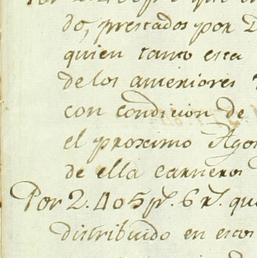 do, prestados por D
quien tanto esta
de los anteriores
con condicion de
el proximo Agos
de ella carneros
Por 2.405 p.s 6 r.s que
distribuido en estos